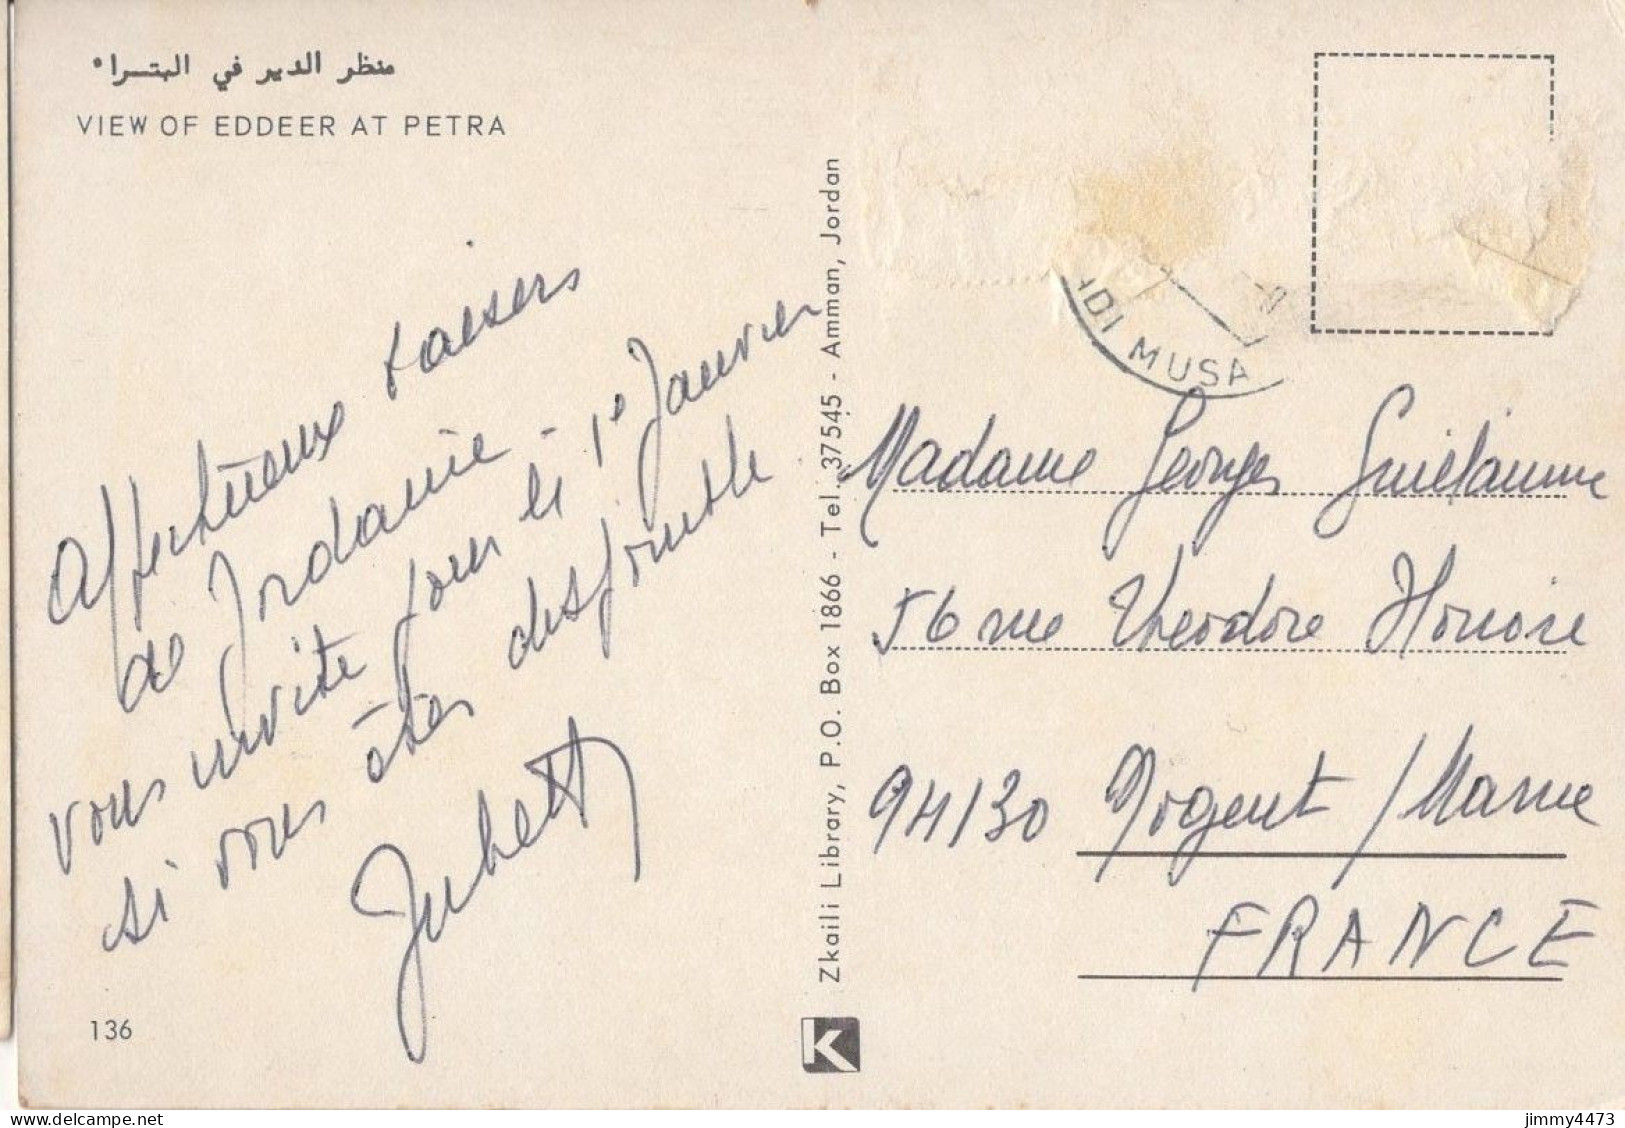 منظر الدير في البتراء
VIEW OF EDDEER AT PETRA
Affectueux baisers
de Jordanie -
vous invite pour le 1e Janvier
si vous êtes disponible
136
Zkaili Library, P.O. Box 1866 - Tel. 37545 - Amman, Jordan
K
ADI MUSA
Madame Georges Guillaume
56 rue Theodore Honoré
94130 Nogent / Marne
FRANCE
jimmy4473